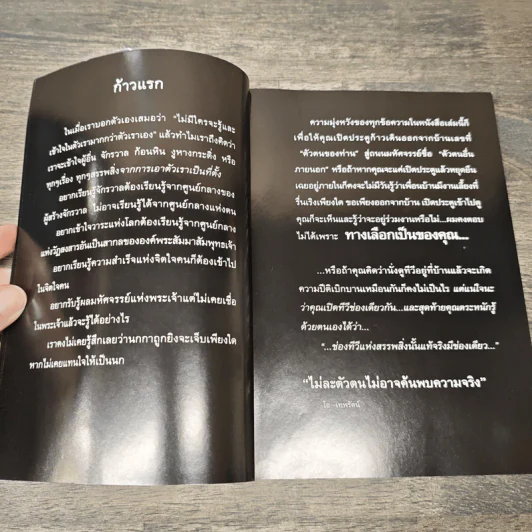 ก้าวแรก
ในเมื่อเราบอกตัวเองเสมอว่า "ไม่มีใครจะรู้และ
เข้าใจในตัวเรามากกว่าตัวเราเอง" แล้วทำไมเราถึงคิดว่า
เราจะเข้าใจผู้อื่น จักรวาล ก้อนหิน งูหางกระดิ่ง หรือ
ทุกๆเรื่อง ทุกๆสรรพสิ่งจากการเอาตัวเราเป็นที่ตั้ง
อยากเรียนรู้จักรวาลต้องเรียนรู้จากศูนย์กลางของ
ผู้สร้างจักรวาล ไม่อาจเรียนรู้ได้จากศูนย์กลางแห่งตน
อยากเข้าใจวาระแห่งโลกต้องเรียนรู้จากศูนย์กลาง
แห่งวัฏสงสารอันเป็นสากลขององค์พระสัมมาสัมพุทธเจ้า
อยากเรียนรู้ความสำเร็จแห่งจิตใจคนก็ต้องเข้าไป
ในจิตใจคน
อยากรับรู้ผลมหัศจรรย์แห่งพระเจ้าแต่ไม่เคยเชื่อ
ในพระเจ้าแล้วจะรู้ได้อย่างไร
เราคงไม่เคยรู้สึกเลยว่านกกาถูกยิงจะเจ็บเพียงใด
หากไม่เคยแทนใจให้เป็นนก
ความมุ่งหวังของทุกข้อความในหนังสือเล่มนี้ก็
เพื่อให้คุณเปิดประตูก้าวเดินออกจากบ้านเลขที่
"ตัวตนของท่าน" สู่ถนนมหัศจรรย์ชื่อ "ตัวตนอื่น
ภายนอก" หรือถ้าหากคุณจะแค่เปิดประตูแล้วหยุดยืน
เฉยอยู่ภายในก็คงจะไม่มีวันรู้ว่าเพื่อนบ้านมีงานเลี้ยงที่
รื่นเริงเพียงใด ขอเพียงออกจากบ้าน เปิดประตูเข้าไปดู
คุณก็จะเห็นและรู้ว่าจะอยู่ร่วมงานหรือไม่...ผมคงตอบ
ไม่ได้เพราะ ทางเลือกเป็นของคุณ...
...หรือถ้าคุณคิดว่านั่งดูทีวีอยู่ที่บ้านแล้วจะเกิด
ความปิติเบิกบานเหมือนกันก็คงไม่เป็นไร แต่แน่ใจนะ
ว่าคุณเปิดทีวีช่องเดียวกัน...และสุดท้ายคุณตระหนักรู้
ด้วยตนเองได้ว่า...
"...ช่องทีวีแห่งสรรพสิ่งนั้นแท้จริงมีช่องเดียว..."
"ไม่ละตัวตนไม่อาจค้นพบความจริง"